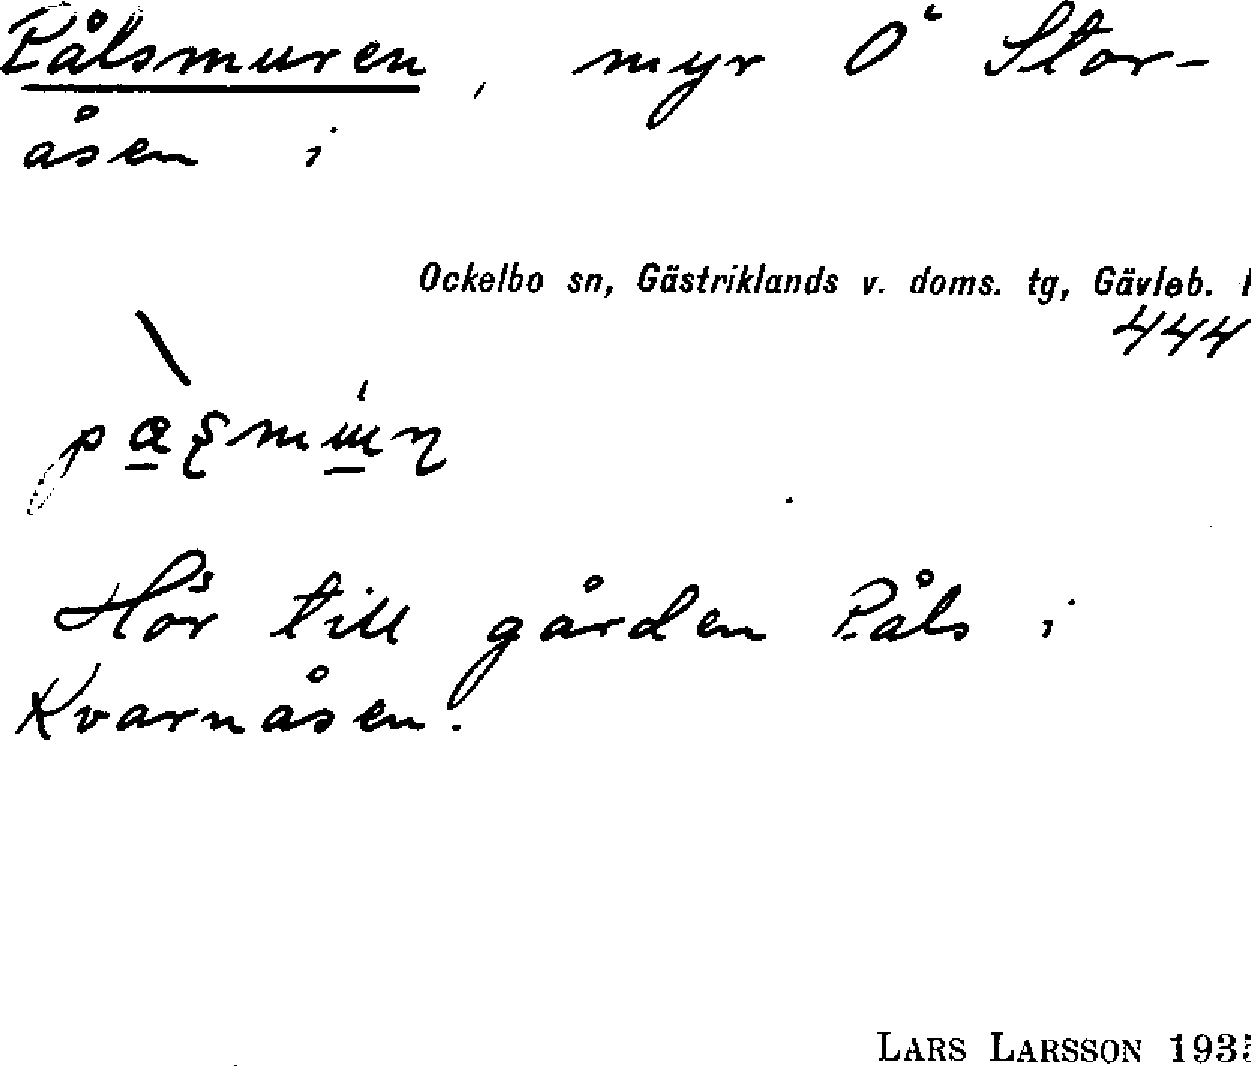 Pålsmuren, myr Ö Stor-
åsen i
Ockelbo sn, Gästriklands v. doms. tg, Gävleb.
444
Hör till gården Påls i
Kvarnåsen.
LARS LARSSON 193